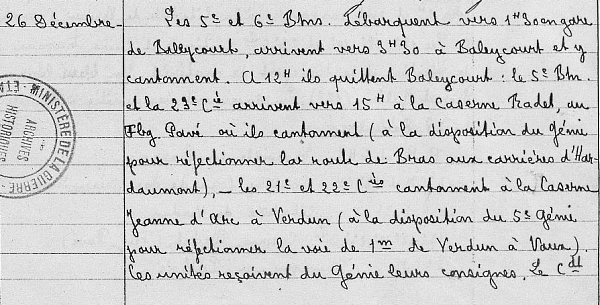 26 Décembre - Les 5e et 6e Btns. Débarquent vers 1H30 en gare
de Baleycourt, arrivent vers 3H30 à Baleycourt et y
cantonnent. A 12H ils quittent Baleycourt : le 5e Btn.
et la 23e Cie arrivent vers 15H à la Caserne Radet, au
Fbg. Pavé où ils cantonnent (à la disposition du génie
pour réfectionner la route de Bras aux carrières d'Har-
daumont), - les 21e et 22e Cies cantonnent à la Caserne
Jeanne d'Arc à Verdun (à la disposition du 5e Génie
pour réfectionner la voie de 1m de Verdun à Vaux).
Ces unités reçoivent du Génie leurs consignes. Le Cdt
MINISTÈRE DE LA GUERRE - ÉTA
ARCHIVES
HISTORIQUES